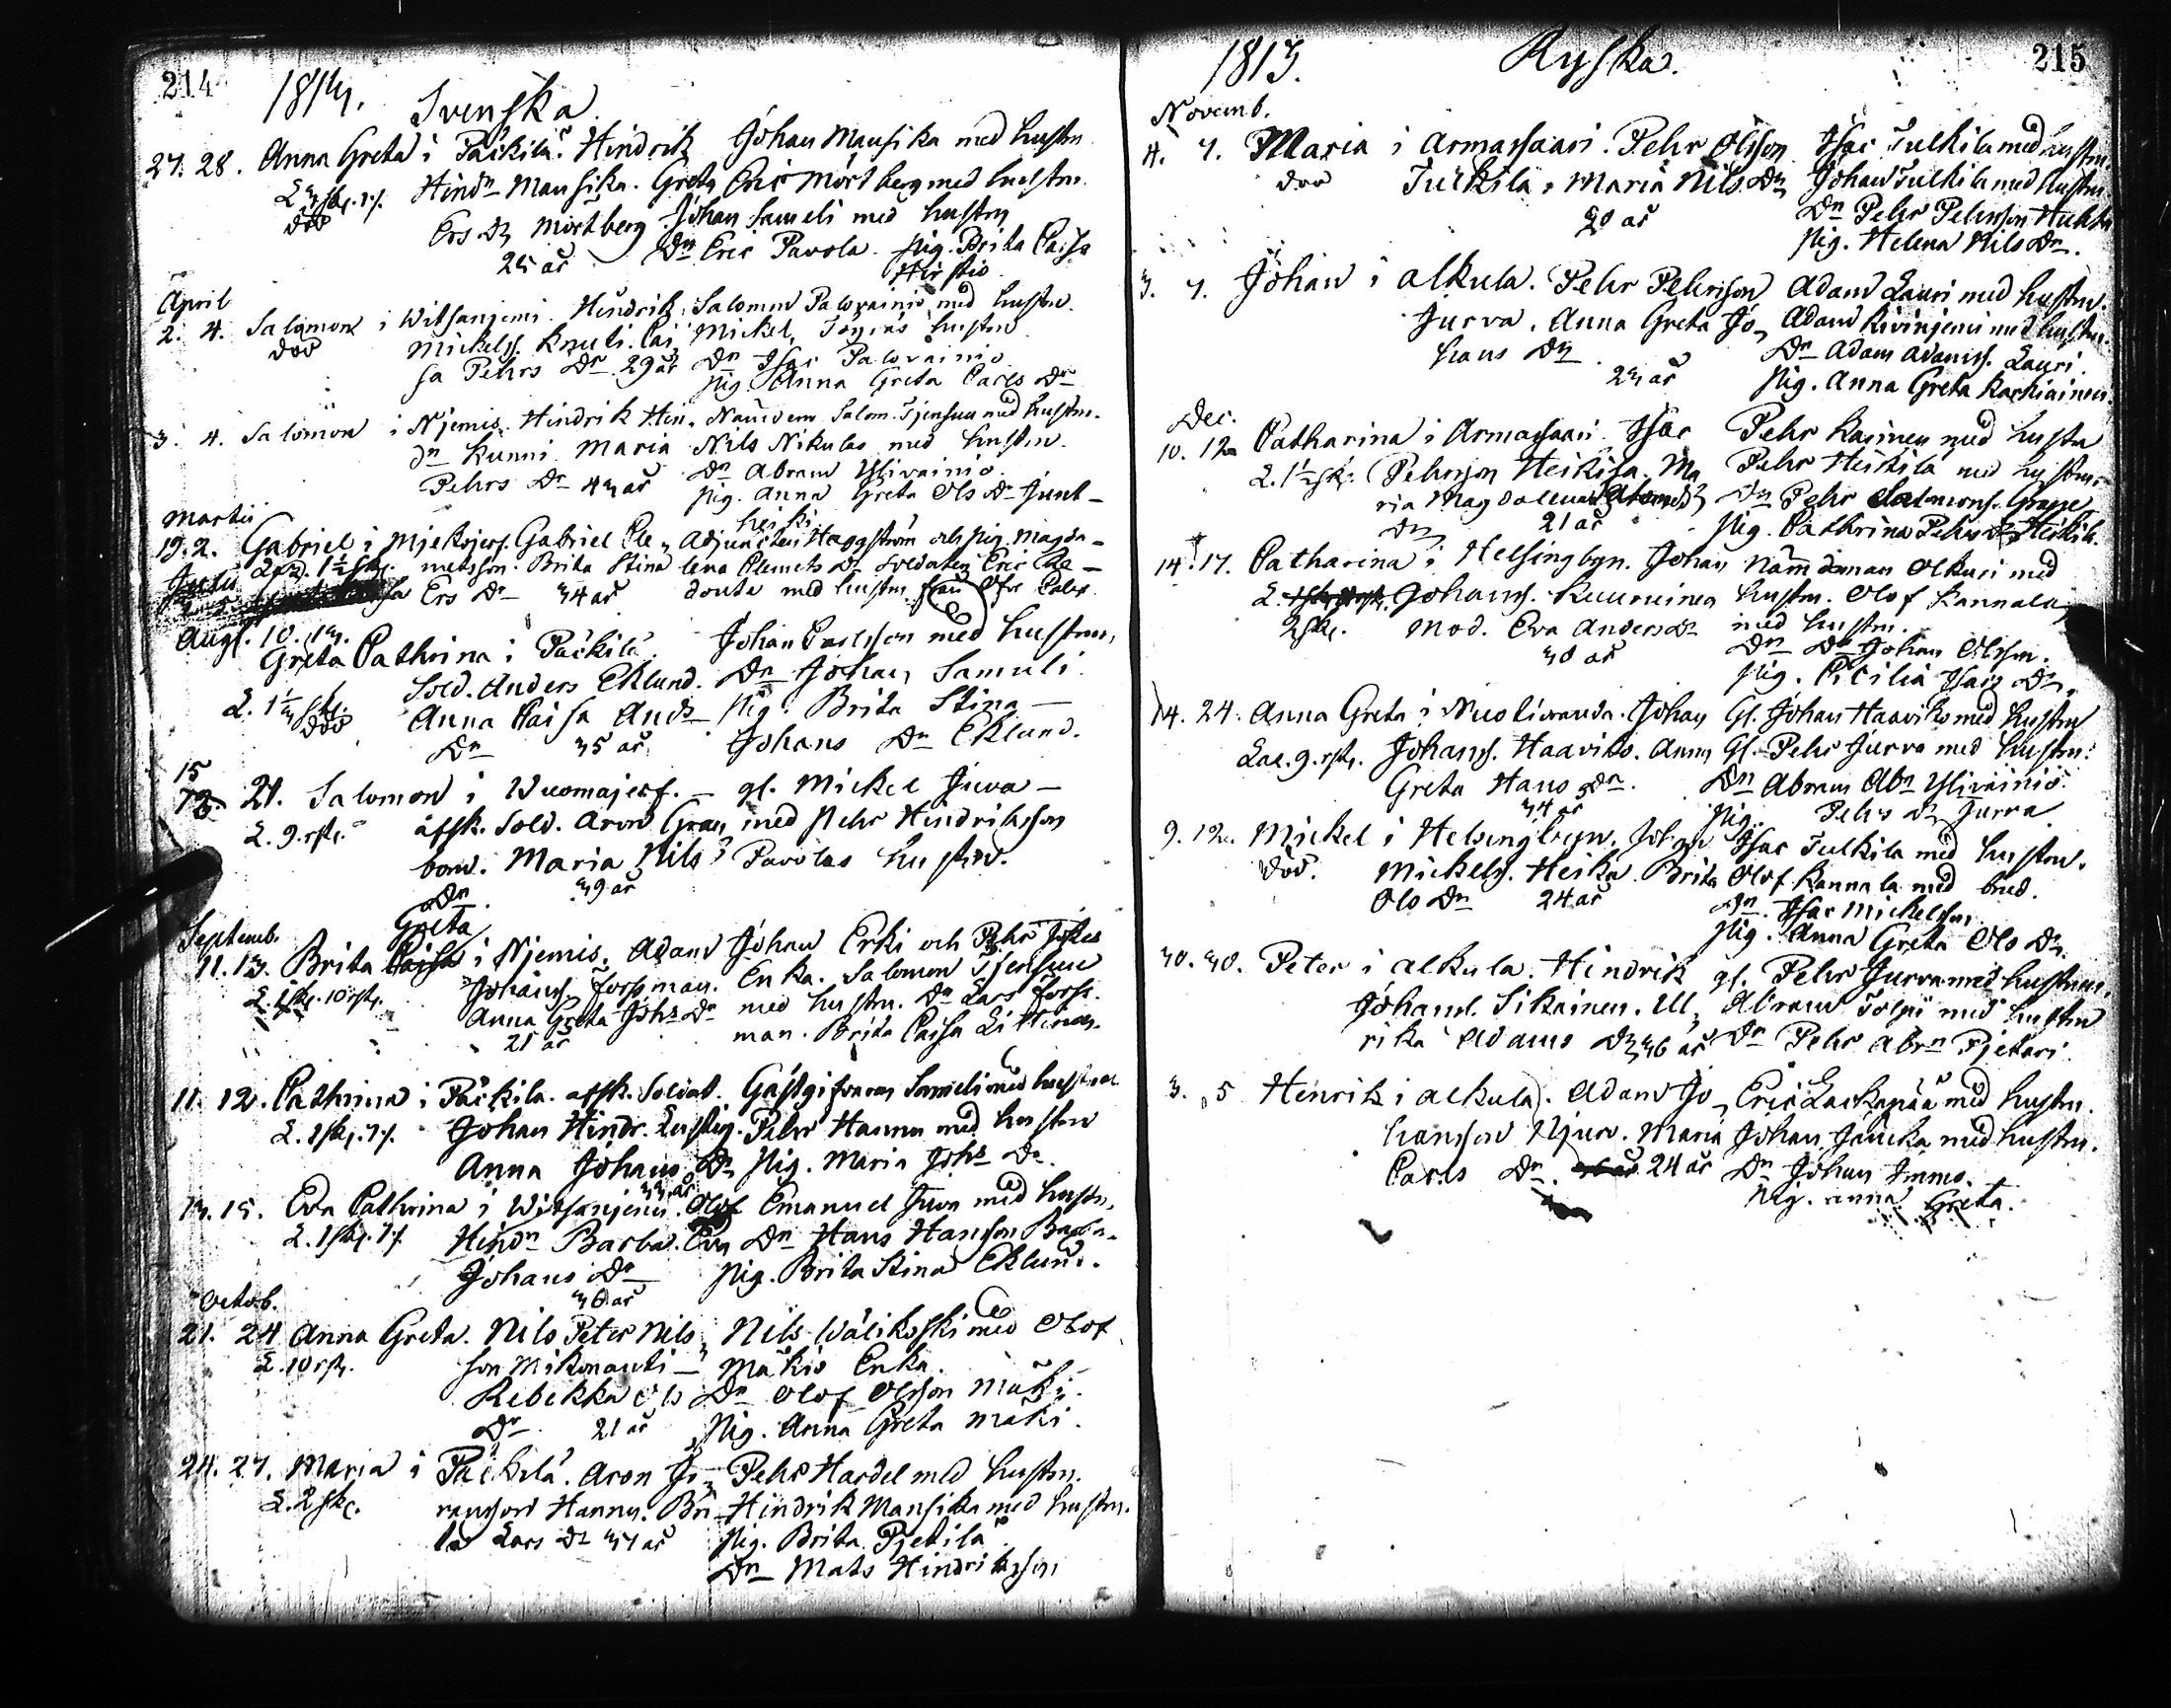 214
1814. Svenska
27. 28. Anna Greta i Päckilä. Hindrik Johan Mansika med hustru
Hindn Mansika. Greta Eric Mörtberg med hustru.
död
Ers Dr Mörtberg. Johan Sameli med hustru
25 år Dn Eric Pavola. Pig. Brita Caisa
April
2. 4. Salomon i Witsanjemi. Hindrik Salomon Palovainio med hustru.
död Mickelss. Knuti. Cai, Mickel Tornias hustru
sa Pehrs Dr 29 år Dn Isac Palovainio
Pig. Anna Greta Carls Dr
3. 4. Salomon i Njemis. Hindrik Hin, Nämdem Salom. Tjensuu med hustru.
dn Kunni Maria Nils Nikulas med hustru.
Pehrs Dr år Dn Abram Ylivainio
Pig. Anna Greta Ols Dr Junt-
heiki
Martii
19. 2. Gabriel i Mjekojerf. Gabriel Cle, Adjuncten Häggström och Pig. Magda-
metsson. Brita Stina lena Clemets Dr Soldaten Eric
Ers Dr 34 år med hustru
Aug. 10. 13.
Greta Cathrina i Päckilä. Johan Carlsson med hustru,
Sold. Anders Eklund. Dn Johan Samuli
död Anna Caisa Ands Pig. Brita Stina
Dr 35 år Johans Dr Eklund.
15
21. Salomon i Wuomajerf. gl. Mickel Juva
L. 9. rst. afsk. Sold. Aron Gran med Pehr Hindriksson
bom. Maria Nils Pavolas hustru.
Dr 39 år
Septemb. Greta
11. 13. Brita Caisa i Njemis. Adam Johan Erki och Pehr
Johanss. Forssman. Enka. Salomon Tjensuu
Anna Greta Johs Dr med hustru. Dn Lars Forss-
21 år man. Brita Caisa
11. 12. Cathrina i Päckilä. afsk. Soldat. Gästgifvaren Sameli med hustru
Johan Hindr. Lustig. Pehr Hannu med hustru
Anna Johans Dr Pig. Maria Johs Dr
33 år
13. 15. Eva Cathrina i Witsanjemi. Olof Emanuel Juva med hustru,
Hindn Barba. Eva Dn Hans Hansson Barba.
Johans Dr Pig. Brita Stina Eklund.
30 år
Octob.
21. 24 Anna Greta. Nils Peter Nils, Nils Wälikoski med Olof
L. 10 rst. son Mikonanti Mäkis Enka.
Rebekka Ols Dn Olof Olsson Mäki.
Dr 21 år Pig. Anna Greta Mäki.
24. 27. Maria i Päckilä. Aron Pehr Hardel med hustru.
L. 2 sk. Hannu. Bri- Hindrik Mansika med hustru.
ta Lars Dr 37 år Pig. Brita Pjetilä
Dn Mats Hindriksson
1813. Ryska. 215
Novemb.
4. 7. Maria i Armassaari. Pehr Olsson Isac Tulkila med hustru,
död Tulkila, Maria Nils Dr Johan Tulkila med hustru.
20 år Dn Pehr Pehrsson Huhta
Pig. Helena Nils Dr.
3. 7. Johan i Alkula. Pehr Pehrsson Adam Lauri med hustru.
Jurva. Anna Greta Jo, Adam Kivinjemi med hustru.
hans Dr Dn Adam Adamss. Lauri.
23 år Pig. Anna Greta Karkiainen
Dec.
10. 12 Catharina i Armassaari. Isac Pehr Karinen med hustru
Pehrsson Heikilä. Ma Pehr Heikilä med hustru.
ria Magdalena Dn Pehr Salmons. Grape
Dr 21 år Pig. Cathrina Pehrs Dr Heikilä.
14. 17. Catharina i Helsingbyn. Johan Nämdeman Olkuri med
Johanss. Kuuruinen hustru. Olof Kannala
2 sk. Mod. Eva Anders Dr med hustru.
30 år Dn Johan Olsson.
Pig. Cicilia Isacs Dr.
14. 24. Anna Greta i Nuotioranda. Johan gl. Johan Haaviko med hustru
Johanss. Haaviko. Anna gl. Pehr Jurva med hustru.
Greta Hans Dr. Dn Abram Abn Ylivainio.
34 år Pig. Pehrs Dr Jurva
9. 12. Mickel i Helsingbyn. Johan Isac Tulkila med hustru.
död. Mickelss. Heika. Brita Olof Kannala med brud.
Ols Dr 24 år Dn. Isac Mickelsson
Pig. Anna Greta Ols Dr.
30. 30. Peter i Alkula. Hindrik gl. Pehr Jurva med hustru,
Johanss. Sikainen. Ul, Abram Tolpi med hustru
rika Adams Dr 36 år Dn Pehr Abrn Pjetari.
3. 5 Henrik i Alkula. Adam Jo, Eric Lackapää med hustru.
hansson Njur. Maria Johan Jancka med hustru.
Carls Dr. 24 år Dn Johan Immo.
Pig. Anna Greta.